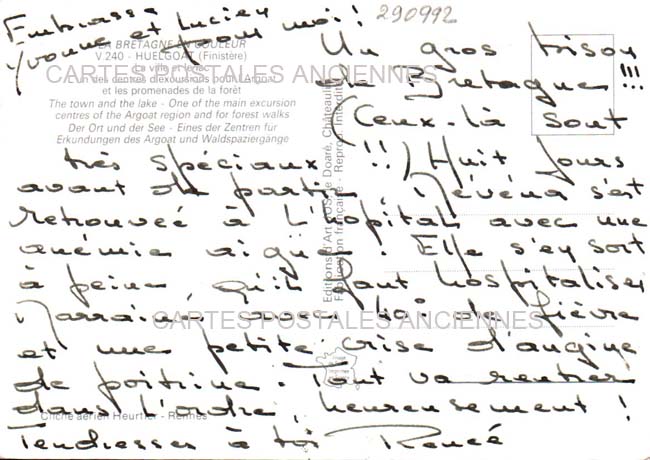 Embrasse
Yvonne et Lucien
pour moi !
290992
LA BRETAGNE EN COULEUR
V 240 - HUELGOAT (Finistère)
La ville et le lac
Un des centres d'excursions pour l'Argoat
et les promenades de la forêt
The town and the lake - One of the main excursion
centres of the Argoat region and for forest walks
Der Ort und der See - Eines der Zentren für
Erkundungen des Argoat und Waldspaziergänge
Un gros bisou
de Bretagne !!!
(Ceux-là sont
très spéciaux !!) Huit jours
avant de partir, Névéna s'est
retrouvée à l'hôpital avec une
anémie aiguë ! Elle s'en sort
à peine qu'il faut hospitaliser
Marraine avec 40° de fièvre
et une petite crise d'angine
de poitrine. Tout va rentrer
dans l'ordre, heureusement !
Tendresses à toi Renée
Editions d'Art JOS Le Doaré, Châteaulin
Fabrication française - Reprod. Interdite
Cliché aérien Heurtier - Rennes
CARTES POSTALES ANCIENNES
CARTES POSTALES ANCIENNES